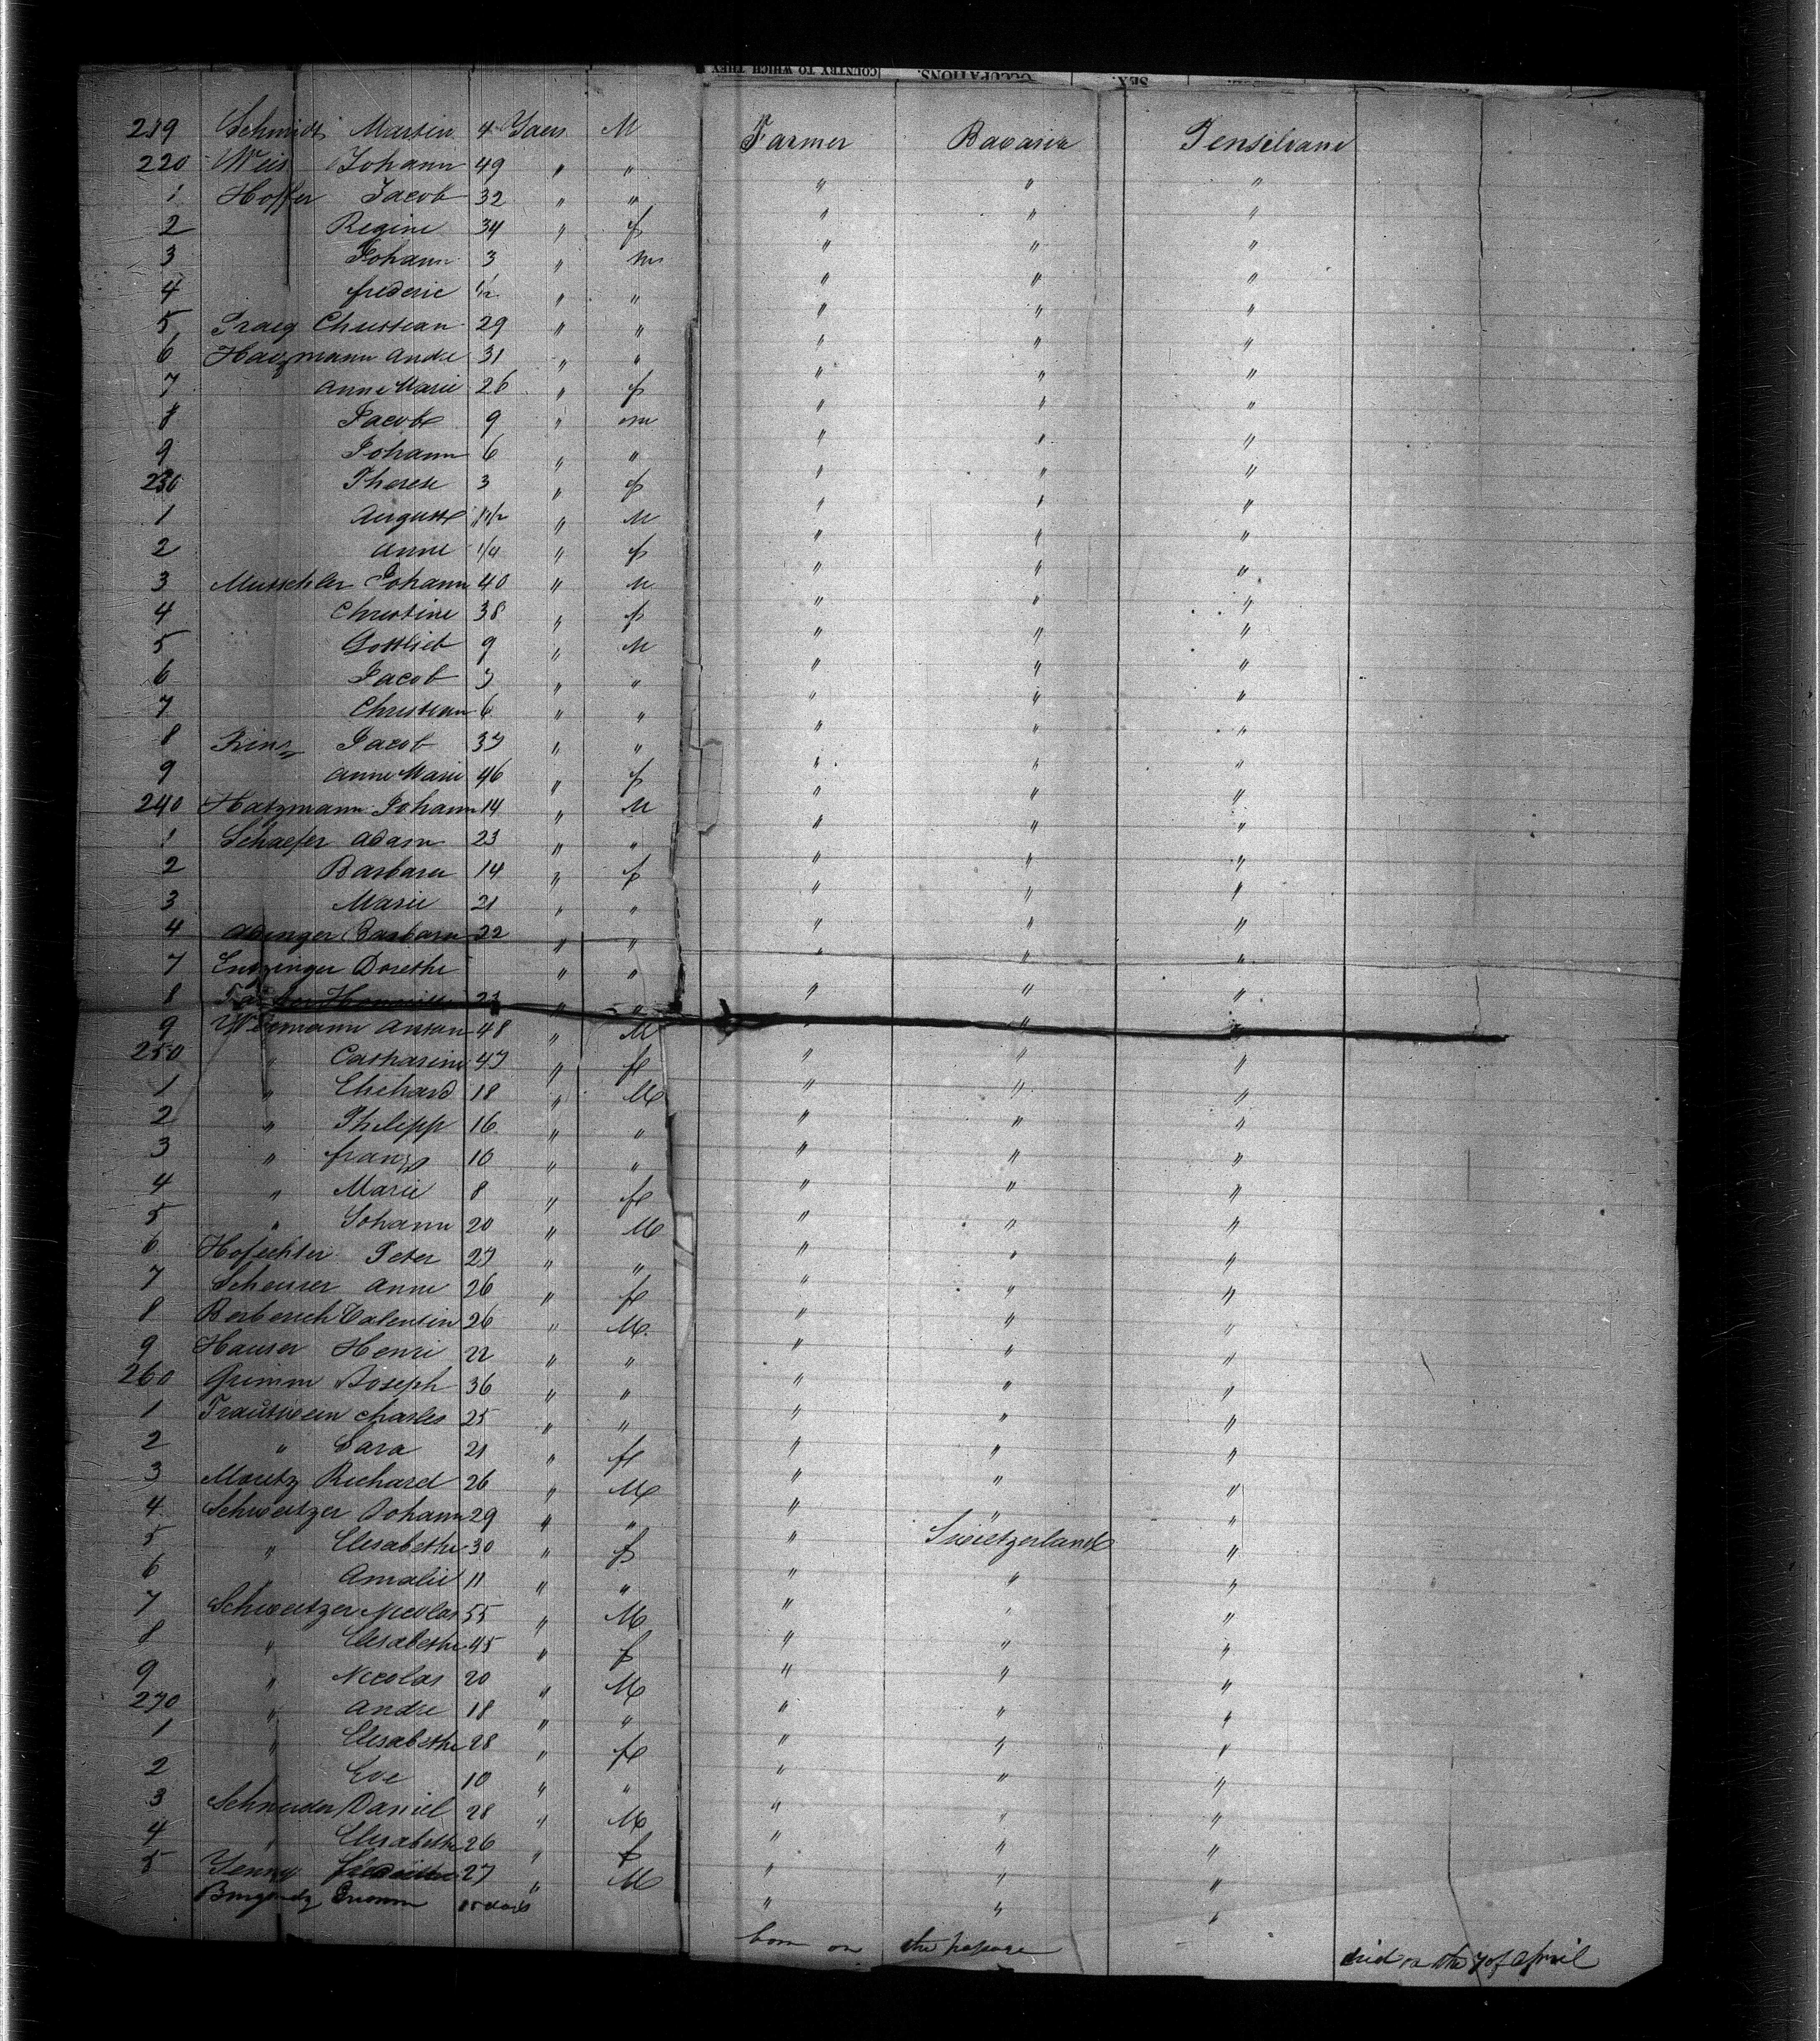 COUNTRY TO WHICH THEY OCCUPATIONS. SEX.
219 Schmidt Martin 4 Years M Farmer Bavaria Pensilvani
220 Weis Johann 49 " " " " "
1 Hoffer Jacob 32 " " " " "
2 Regine 34 " f " " "
3 Johann 3 " m " " "
4 frederic 1/2 " " " " "
5 Praeg Christian 29 " " " " "
6 Hatzmann Andre 31 " " " " "
7 Anne Marie 26 " f " " "
8 Jacob 9 " m " " "
9 Johann 6 " " " " "
230 Therese 3 " f " " "
1 August 1 1/2 " M " " "
2 Anne 1/4 " f " " "
3 Mutschler Johann 40 " M " " "
4 Christine 38 " f " " "
5 Gottlieb 9 " M " " "
6 Jacob " " " " "
7 Christian 6 " " " " "
8 Jacob 37 " " " " "
9 Anne Marie 46 " f " " "
240 Hatzmann Johann 14 " M " " "
1 Schaefer Adam 23 " " " " "
2 Barbara 14 " f " " "
3 Marie 21 " " " " "
4 Barbara 22 " " " " "
7 Entzinger Dorethe " " " " "
8 23 " " " " "
9 Anton 48 " M " "
250 " Catharine 47 " f " " "
1 " 18 " M " " "
2 " Philipp 16 " " " " "
3 " franz 10 " " " " "
4 " Marie 8 " f " " "
5 " Johann 20 " M " " "
6 Peter 27 " " " " "
7 Scheurer Anne 26 " f " " "
8 Berberich Valentin 26 " M. " " "
9 Hauser Henri 22 " " " " "
260 Grimm Joseph 36 " " " " "
1 Trautwein Charles 25 " " " " "
2 " Sara 21 " f " " "
3 Moritz Richard 26 " M " " "
4 Schweitzer Johann 29 " " " Swietzerland "
5 " Elisabethe 30 " f " " "
6 " Amalie 11 " " " " "
7 Schweitzer Nicolas 55 " M " " "
8 " Elisabethe 45 " f " " "
9 " Nicolas 20 " M " " "
270 " Andre 18 " " " " "
1 " Elisabethe 28 " f " " "
2 Eve 10 " " " " "
3 Schneider Daniel 28 " M " " "
4 " Elisabethe 26 " f " " "
5 Jenny 27 " M " " "
days
born on the passage died on the 7 of April